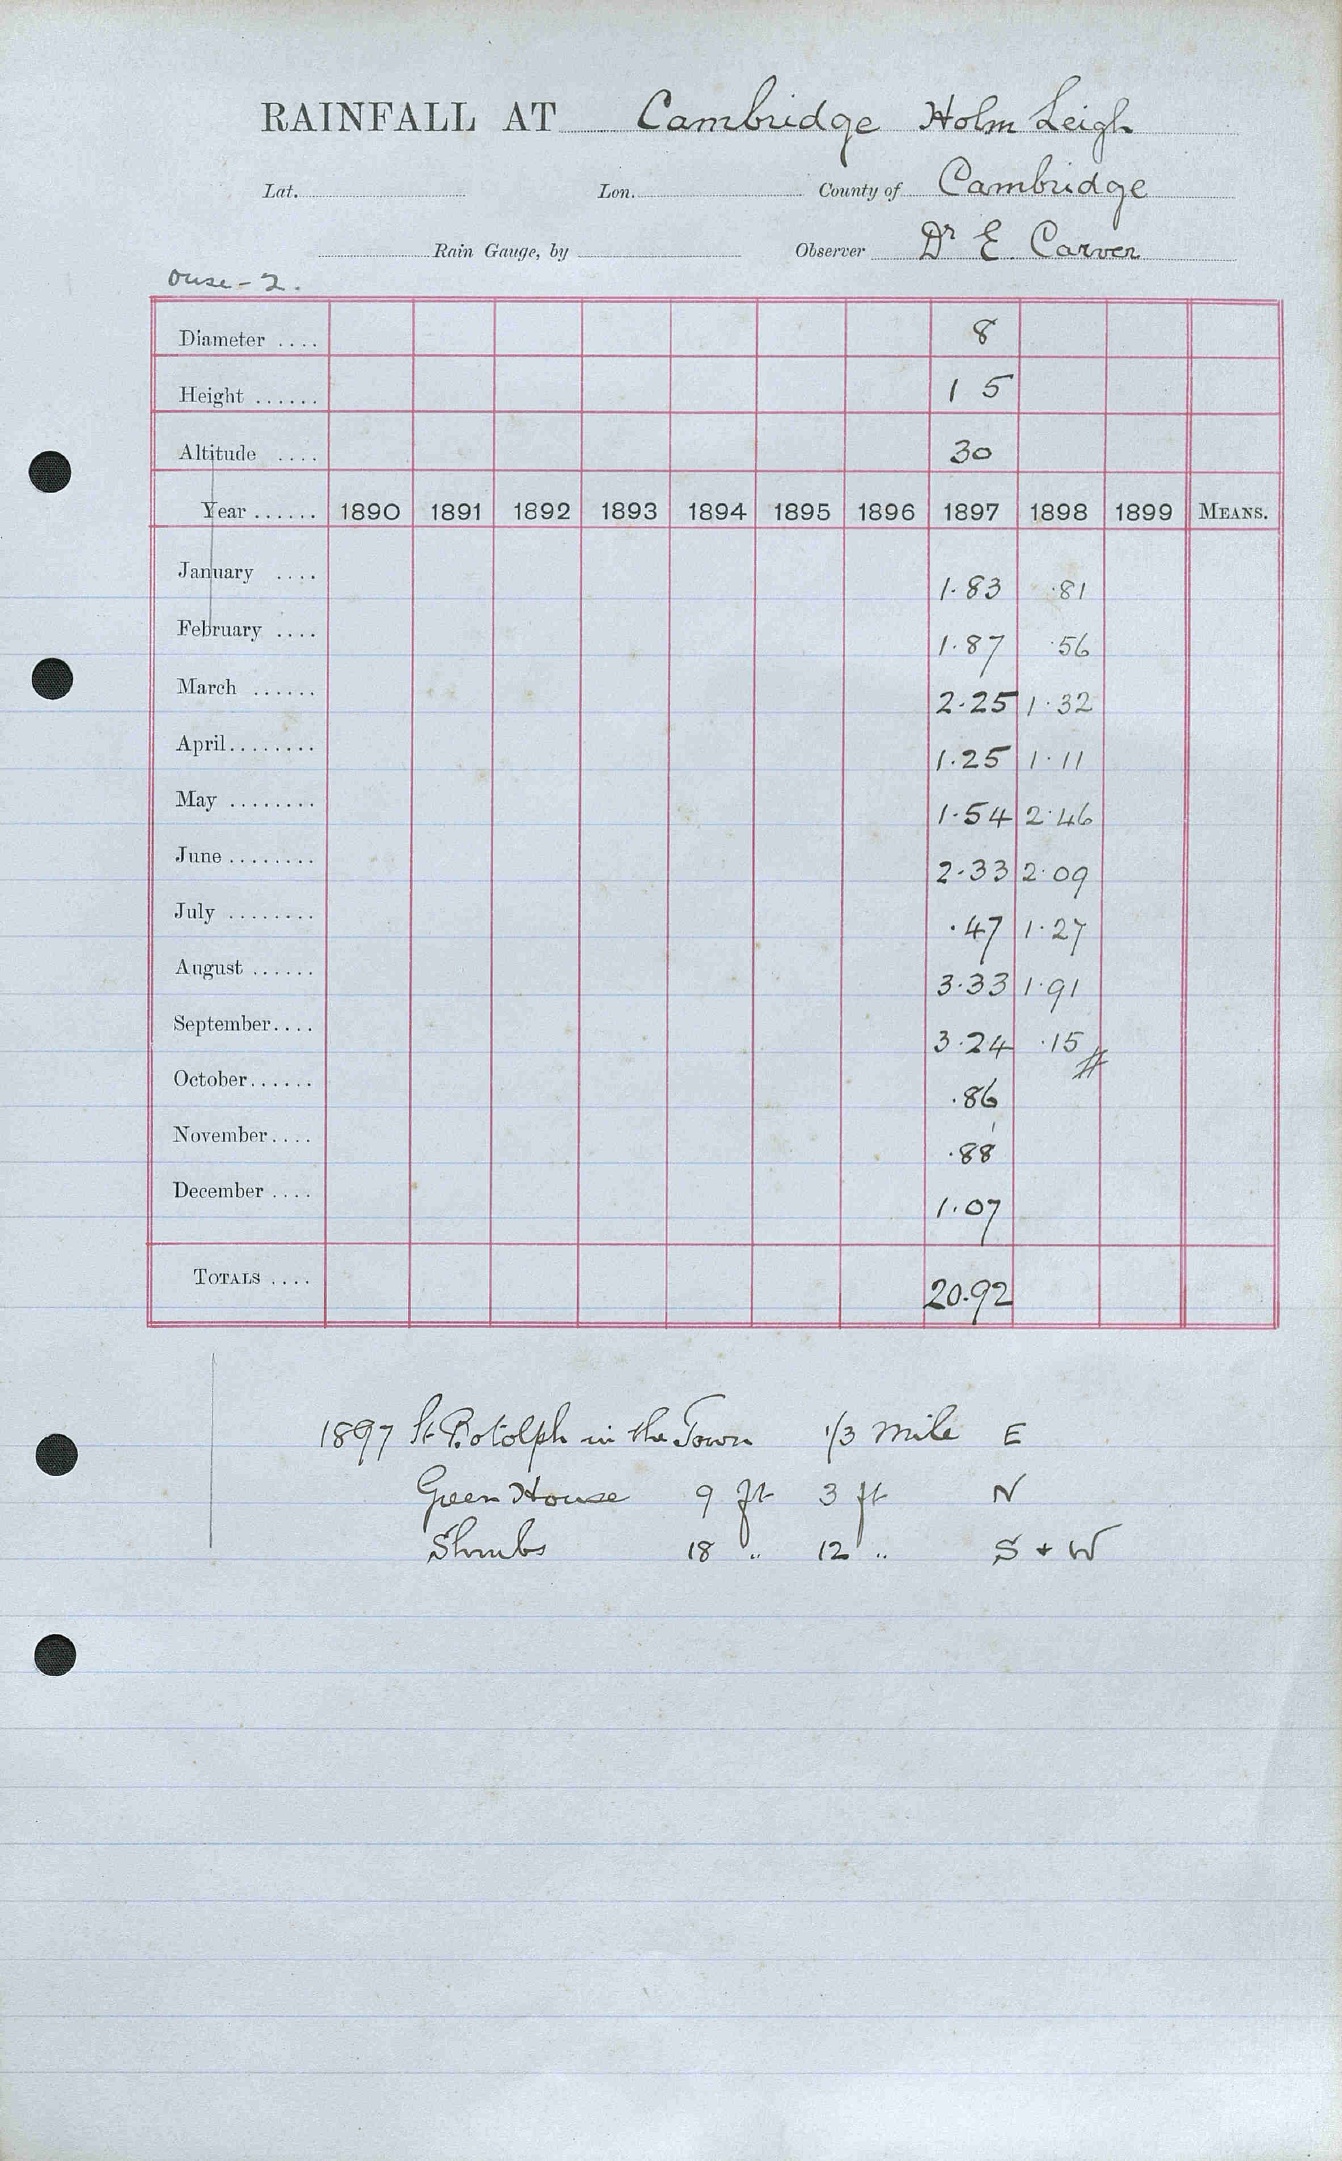 RAINFALL AT Cambridge Holm Leigh
Lat. Lon. County of Cambridge
Rain Gauge, by Observer Dr E Carver
Ouse - 2.
Diameter .... 8
Height ...... 1 5
Altitude .... 30
Year ...... 1890 1891 1892 1893 1894 1895 1896 1897 1898 1899 MEANS.
January .... 1.83 .81
February .... 1.87 .56
March ...... 2.25 1.32
April........ 1.25 1.11
May ........ 1.54 2.46
June ........ 2.33 2.09
July ........ .47 1.27
August ...... 3.33 1.91
September.... 3.24 .15 #
October...... .86
November.... .88
December .... 1.07
TOTALS .... 20.92
1897 St Botolph in the Town 1/3 mile E
Green House 9 ft 3 ft N
Shrubs 18 " 12 " S + W